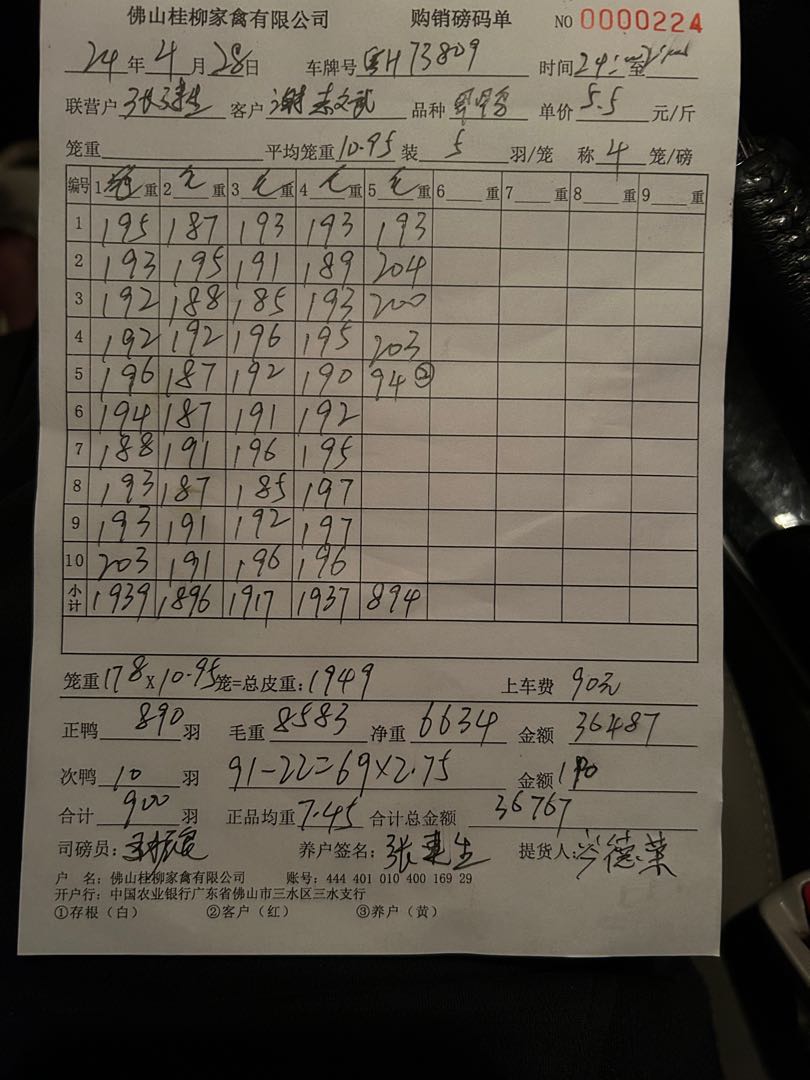 佛山桂柳家禽有限公司 购销磅码单 NO 0000224
24年4月28日 车牌号 粤H73809 时间 24: 至
联营户 张建生 客户 谢 武 品种 单价 5.5 元/斤
笼重 平均笼重 10.95 装 5 羽/笼 称 4 笼/磅
编号 1 重 2 毛 重 3 毛 重 4 毛 重 5 毛 重 6 重 7 重 8 重 9 重
1 195 187 193 193 193
2 193 195 191 189 204
3 192 188 185 193 200
4 192 192 196 195 203
5 196 187 192 190 94 ②
6 194 187 191 192
7 188 191 196 195
8 193 187 185 197
9 193 191 192 197
10 203 191 196 196
小计 1939 1896 1917 1937 894
笼重 178 X 10.95 笼=总皮重: 1949 上车费 90元
正鸭 890 羽 毛重 8583 净重 6634 金额 36487
次鸭 10 羽 91-22=69×2.75 金额 190
合计 900 羽 正品均重 7.45 合计总金额 36767
司磅员: 养户签名: 张建生 提货人: 岑德荣
户 名: 佛山桂柳家禽有限公司 账号: 444 401 010 400 169 29
开户行: 中国农业银行广东省佛山市三水区三水支行
①存根(白) ②客户(红) ③养户(黄)